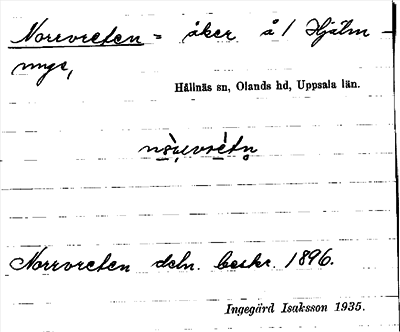 Norrvreten = åker å/ Hjälm-
unge,
Hållnäs sn, Olands hd, Uppsala län.
Norrvreten deln. beskr. 1896.
Ingegärd Isaksson 1935.